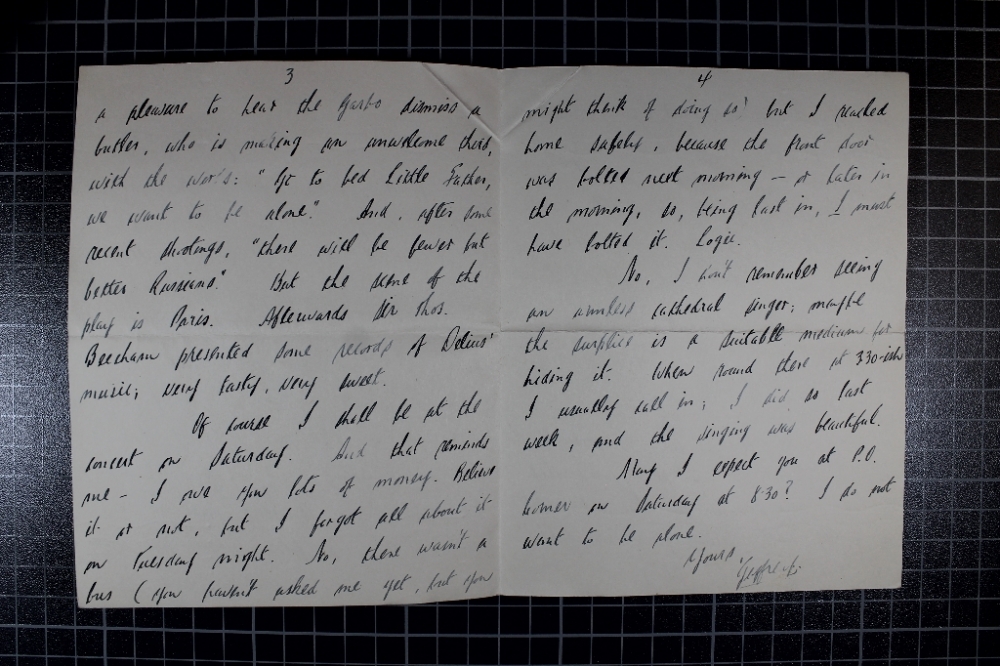 3
a pleasure to hear the Garbo dismiss a
butler, who is making an unwelcome third,
with the words: "Go to bed Little Father,
we want to be alone". And, after some
recent shootings, "there will be fewer but
better Russians". But the scene of the
play is Paris. Afterwards Sir Thos.
Beecham presented some records of Delius'
music; very tasty, very sweet.
Of course I shall be at the
concert on Saturday. And that reminds
me - I owe you lots of money. Believe
it or not, but I forgot all about it
on Tuesday night. No, there wasn't a
bus (you haven't asked me yet, but you
4
might think of doing so) but I reached
home safely, because the front door
was bolted next morning - or later in
the morning, so, being last in, I must
have bolted it. Logic.
No, I don't remember seeing
an armless cathedral singer; maybe
the surplice is a suitable medium for
hiding it. When round there at 3.30-ish
I usually call in; I did so last
week, and the singing was beautiful.
May I expect you at P.O.
corner on Saturday at 8.30? I do not
want to be alone.
Yours,
Geoffrey.